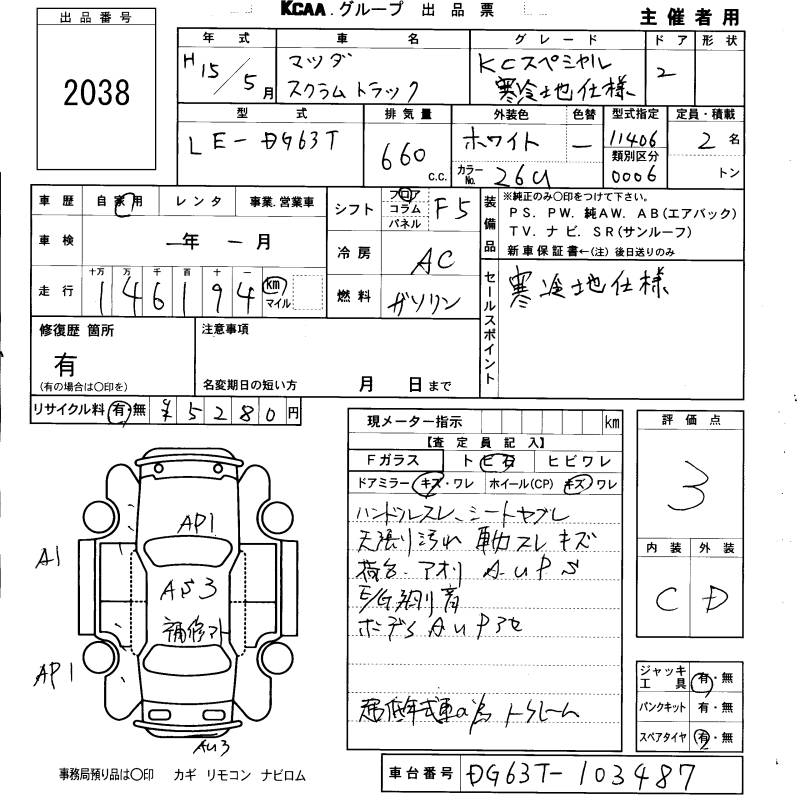 KCAA.グループ 出品票
主催者用
出品番号
2038
年式 車名 グレード ドア 形状
H15/5月 マツダ スクラムトラック KCスペシャル 寒冷地仕様 2
型式 排気量 外装色 色替 型式指定 定員・積載
LE-DG63T 660 c.c. ホワイト — 11406 2名
類別区分
カラーNo. 26U 0006 トン
車歴 自家用 レンタ 事業.営業車
シフト フロア コラム パネル F5
装備品
※純正のみ〇印をつけて下さい。
PS. PW. 純AW. AB(エアバック)
TV. ナビ. SR(サンルーフ)
新車保証書←(注)後日送りのみ
車検 —年 -月
冷房 AC
走行 十万 万 千 百 十 一
146194 km マイル
燃料 ガソリン
セールスポイント 寒冷地仕様
修復歴 箇所
有
(有の場合は〇印を)
注意事項
名変期日の短い方 月 日まで
リサイクル料 有・無 ¥5280円
現メーター指示 km
【査定員記入】
Fガラス トビ石 ヒビワレ
ドアミラー キズ・ワレ ホイール(CP) キズ・ワレ
ハンドルスレ、シートヤブレ
天張り汚れ 車内スレ キズ
荷台.アオリ AUPS
E/G
ボデー AUP
評価点
3
内装 外装
C D
AP1
A1
AS3
補修
AP1
AU3
ジャッキ工具 有・無
パンクキット 有・無
スペアタイヤ 有・無
事務局預り品は〇印 カギ リモコン ナビロム
車台番号 DG63T-103487